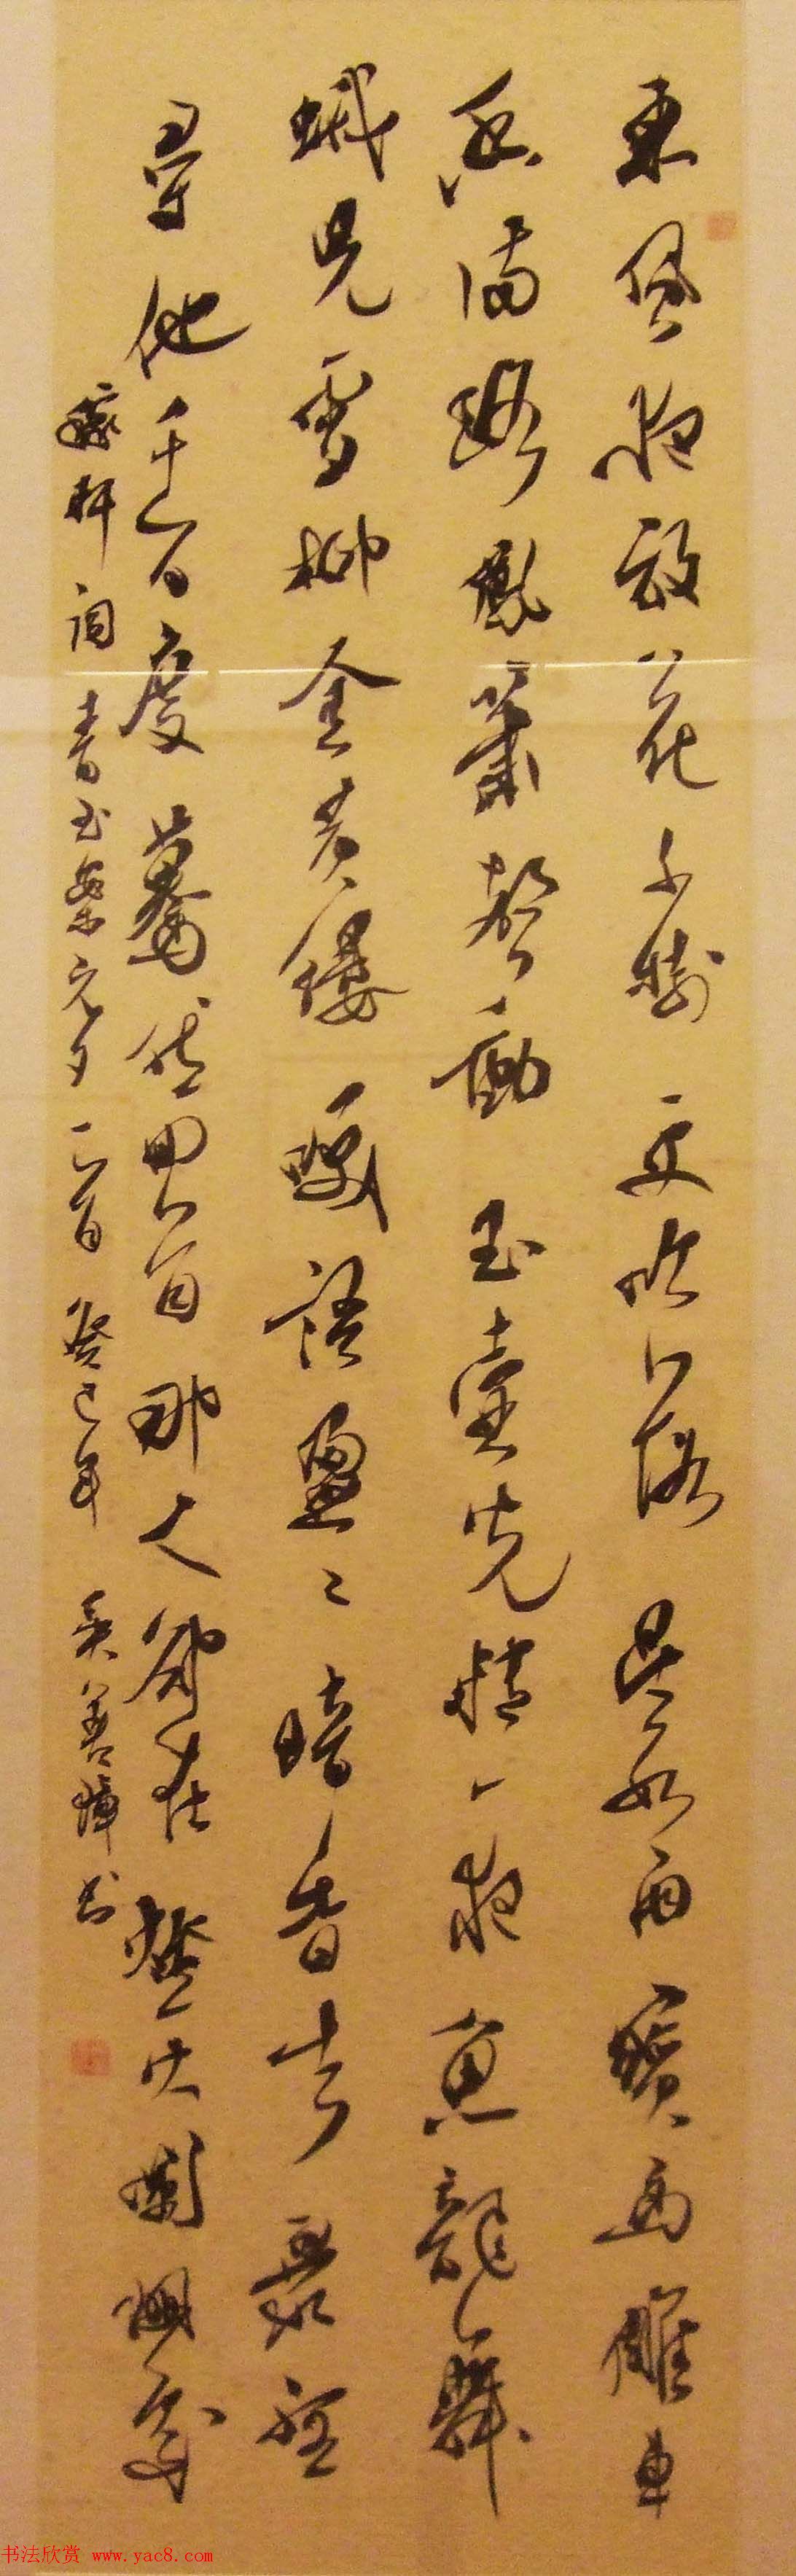 東風夜放花千樹更吹落星如雨寶馬雕車
香滿路鳳簫聲動玉壺光轉一夜魚龍舞
蛾兒雪柳金黃縷笑語盈〻暗香去眾裡
尋他千百度驀然回首那人卻在燈火闌珊處
稼軒詞青玉案元夕一首癸巳年吳善璋書
书法欣赏 www.yac8.com